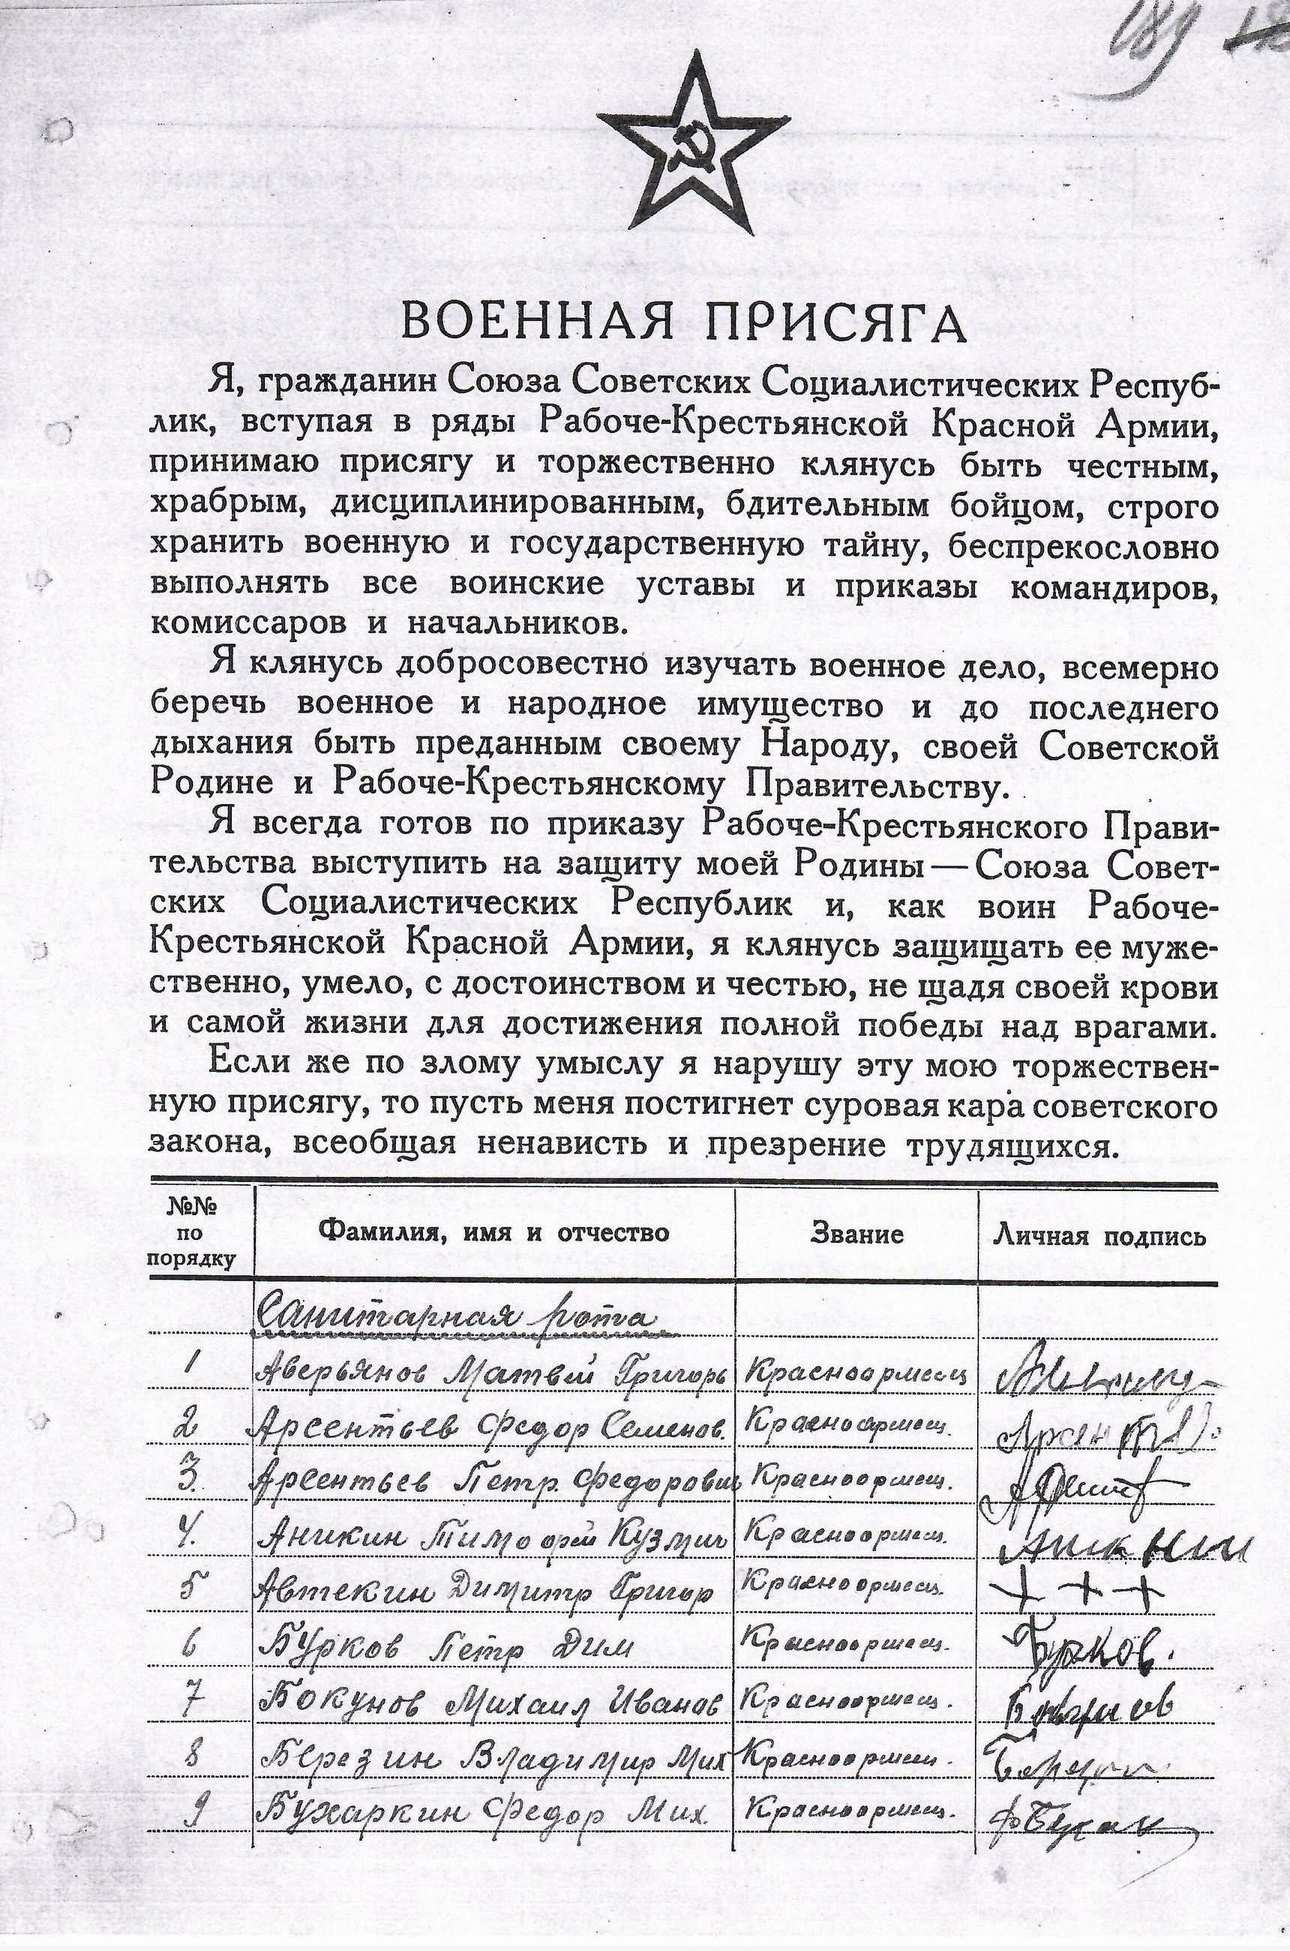 189
ВОЕННАЯ ПРИСЯГА
Я, гражданин Союза Советских Социалистических Респуб-
лик, вступая в ряды Рабоче-Крестьянской Красной Армии,
принимаю присягу и торжественно клянусь быть честным,
храбрым, дисциплинированным, бдительным бойцом, строго
хранить военную и государственную тайну, беспрекословно
выполнять все воинские уставы и приказы командиров,
комиссаров и начальников.
Я клянусь добросовестно изучать военное дело, всемерно
беречь военное и народное имущество и до последнего
дыхания быть преданным своему Народу, своей Советской
Родине и Рабоче-Крестьянскому Правительству.
Я всегда готов по приказу Рабоче-Крестьянского Прави-
тельства выступить на защиту моей Родины — Союза Совет-
ских Социалистических Республик и, как воин Рабоче-
Крестьянской Красной Армии, я клянусь защищать ее муже-
ственно, умело, с достоинством и честью, не щадя своей крови
и самой жизни для достижения полной победы над врагами.
Если же по злому умыслу я нарушу эту мою торжествен-
ную присягу, то пусть меня постигнет суровая кара советского
закона, всеобщая ненависть и презрение трудящихся.
№№ по порядку Фамилия, имя и отчество Звание Личная подпись
Санитарная рота
1 Аверьянов Матвей Григорь Красноармеец
2 Арсентьев Федор Семенов. Красноармеец.
3. Арсентьев Петр Федорович Красноармеец.
4. Аникин Тимофей Кузмич Красноармеец. Аникин
5 Автекин Димитр Григор Красноармеец. + + +
6 Бурков Петр Дим Красноармеец. Бурков.
7 Бокунов Михаил Иванов Красноармеец.
8 Березин Владимир Мих Красноармеец.
9 Бухаркин Федор Мих. Красноармеец.